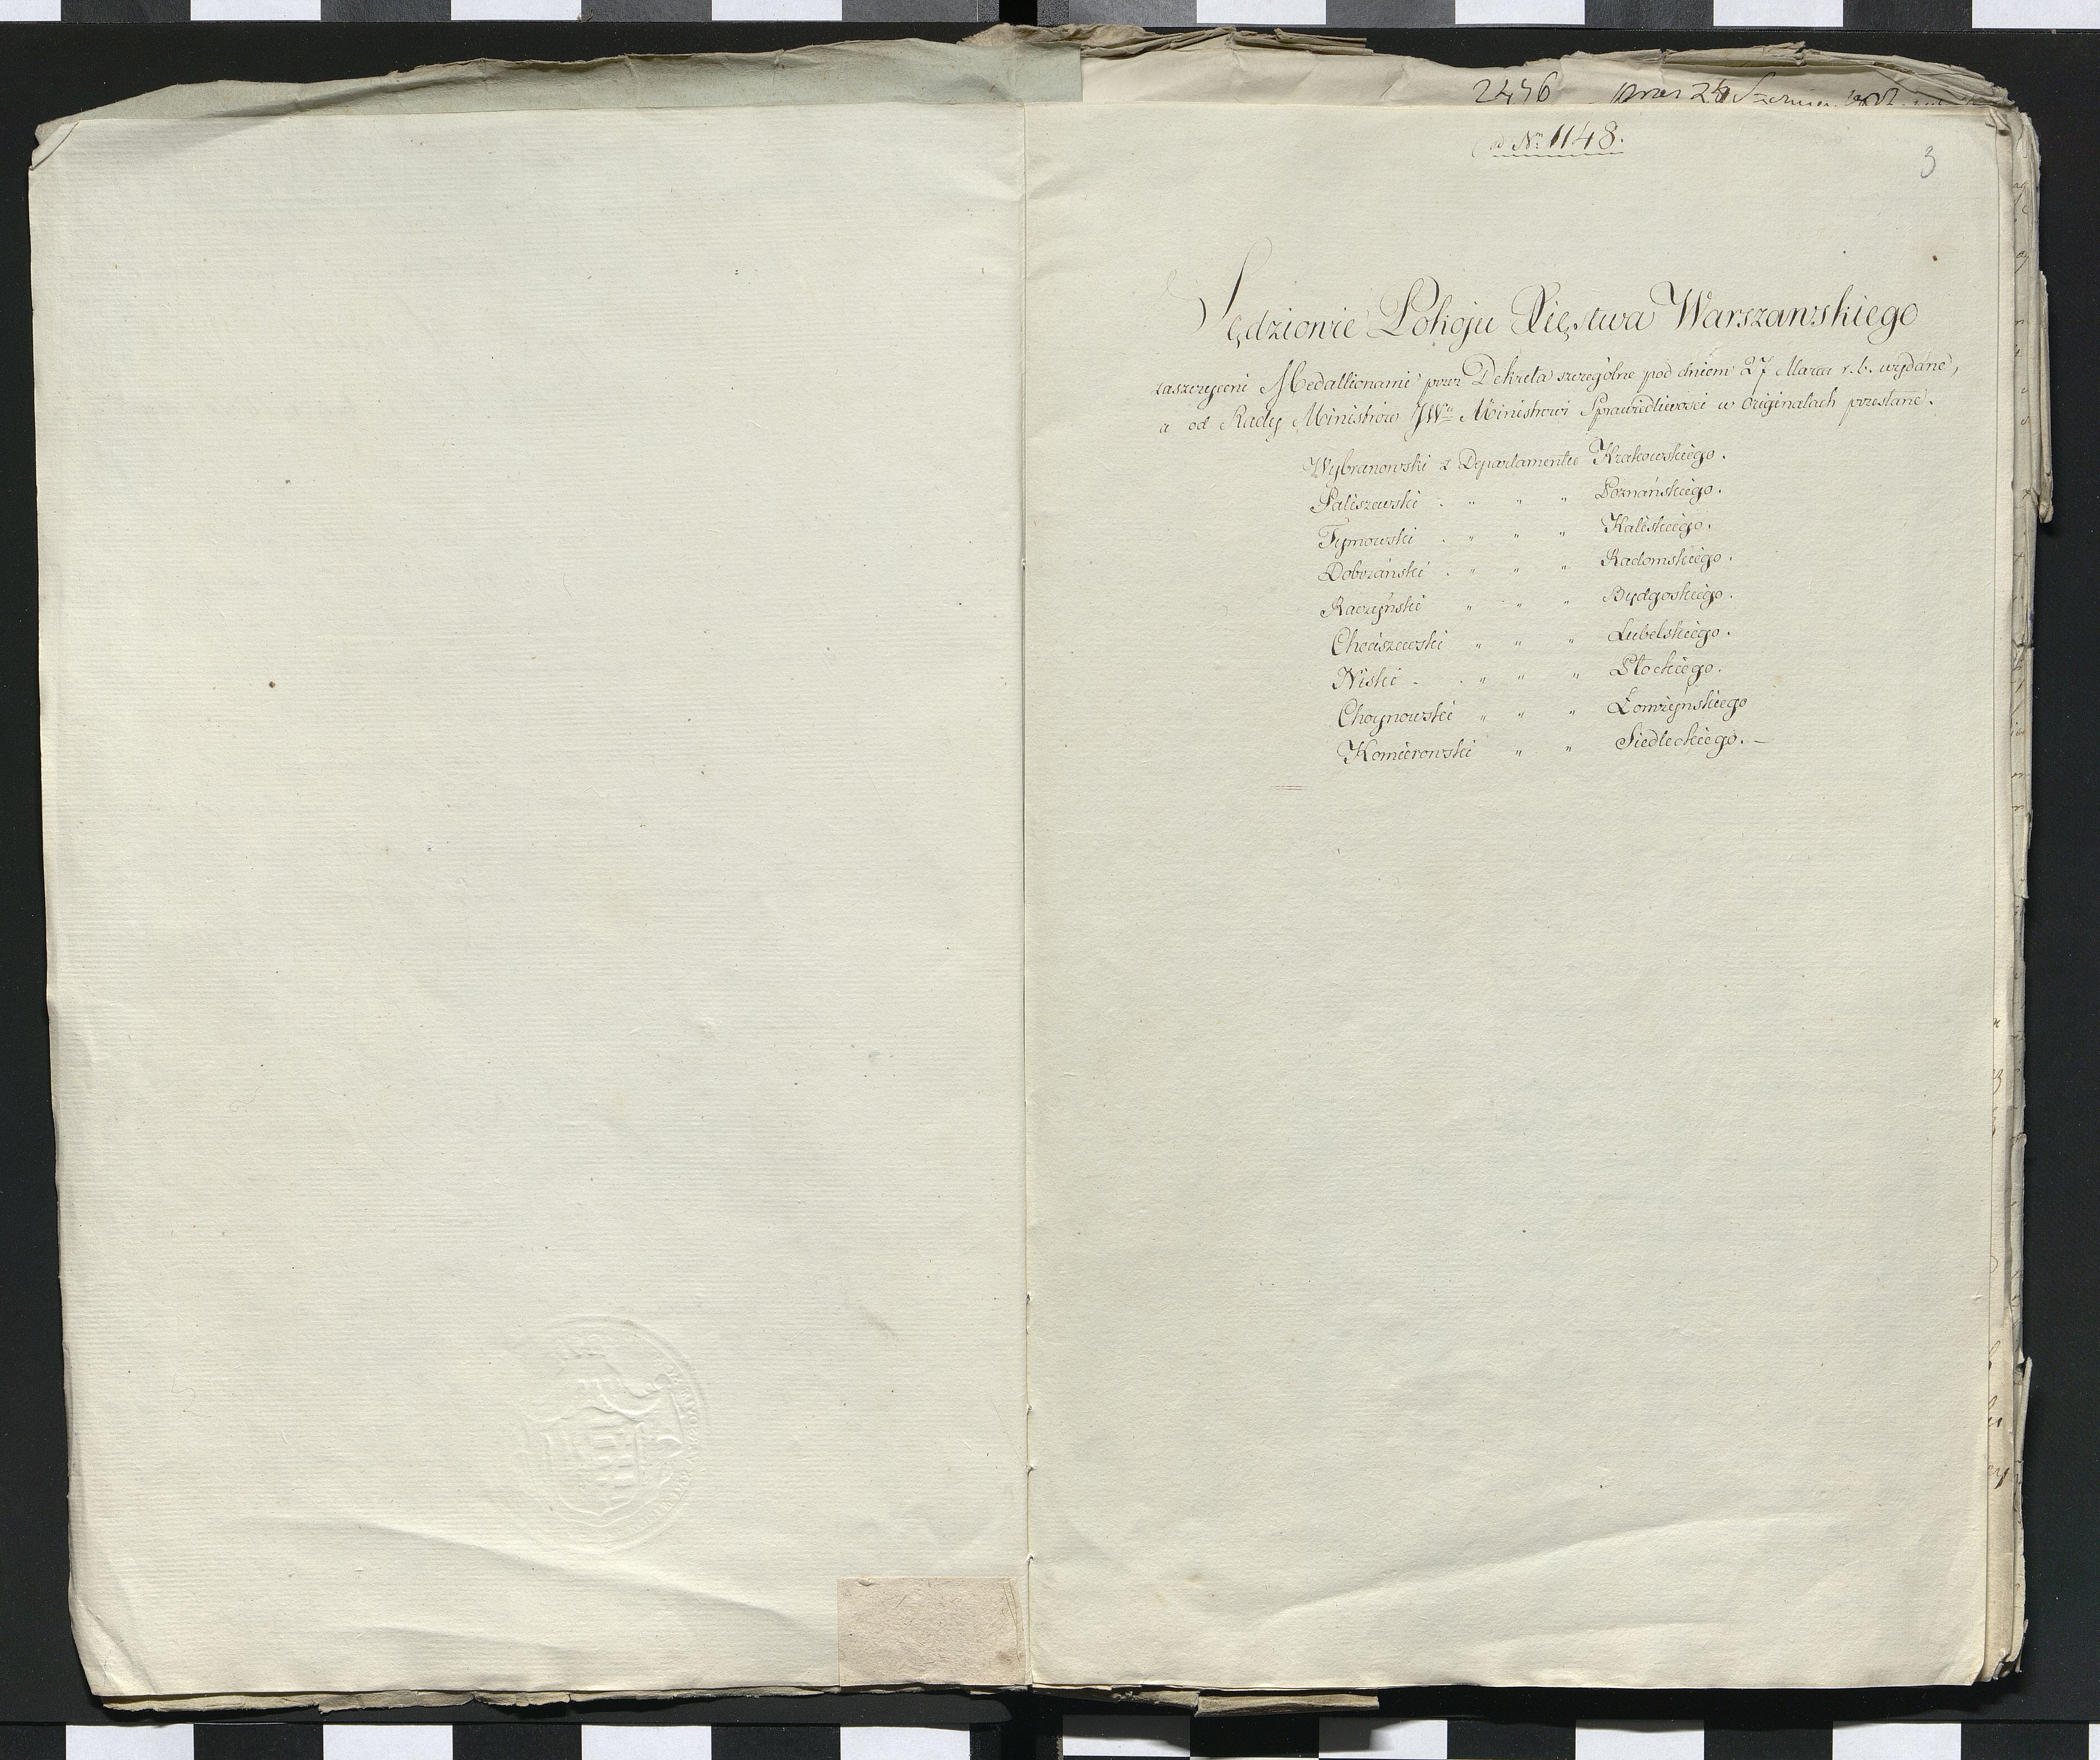 2446
ad Nr. 1148.
3
Sędziowie Pokoju Xięstwa Warszawskiego
zaszczyceni Medallionami przez Dekreta szczególne pod dniem 27 Marca r. b. wydane,
a od Rady Ministrów JWu Ministrowi Sprawiedliwości w Originałach przesłane.
Wybranowski z Departamentu Krakowskiego.
Paliszewski . " " " Poznańskiego.
Tymowski . " " " Kaliskiego.
Dobrzański . " " " Radomskiego.
Raczyński " " " Bydgoskiego.
Chociszewski " " " Lubelskiego.
Niski - . " " " Płockiego.
Choynowski " " " Łomżyńskiego
Komierowski " " Siedleckiego. —